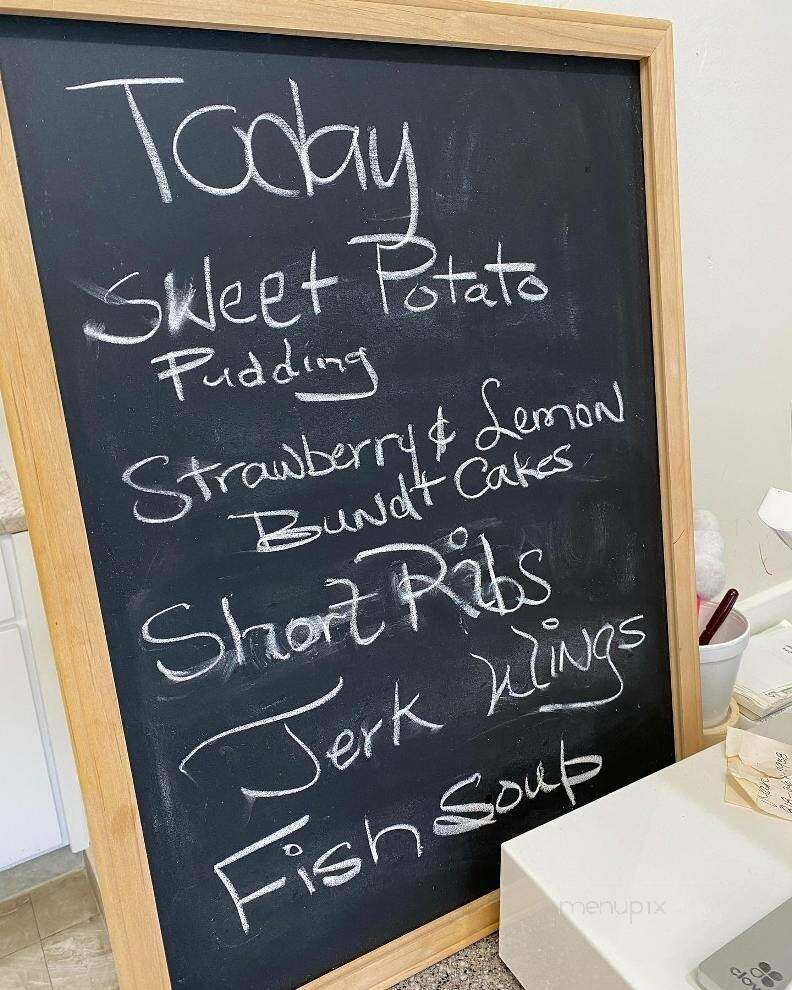 Today
Sweet Potato
Pudding
Strawberry & Lemon
Bundt Cakes
Short Ribs
Jerk Wings
Fish Soup
menupix